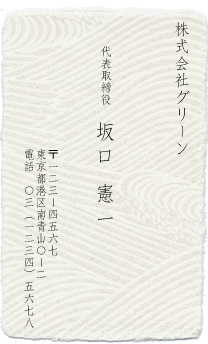 株式会社グリーン
代表取締役
坂口 憲一
〒一二三ー四五六七
東京都港区南青山〇ー二
電話 〇三（一二三四）五六七八